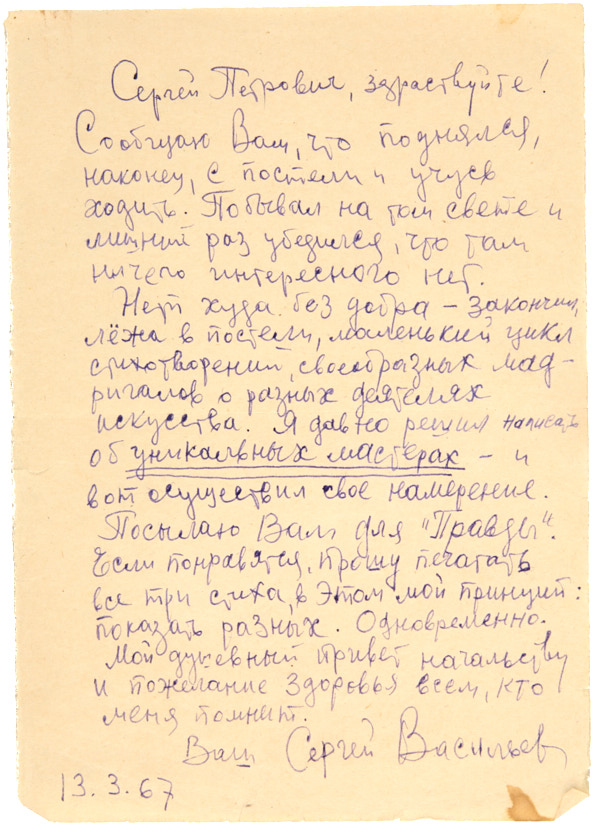 Сергей Петрович, здраствуйте!
Сообщаю Вам, что поднялся,
наконец, с постели и учусь
ходить. Побывал на том свете и
лишний раз убедился, что там
ничего интересного нет.
Нет худа без добра – закончил,
лёжа в постели, маленький цикл
стихотворений, своеобразных мад-
ригалов о разных деятелях
искусства. Я давно решил написать
об уникальных мастерах – и
вот осуществил свое намерение.
Посылаю Вам для "Правды".
Если понравятся, прошу печатать
все три стиха, в этом мой принцип:
показать разных. Одновременно.
Мой душевный привет начальству
и пожелание здоровья всем, кто
меня помнит.
Ваш Сергей Васильев
13.3.67